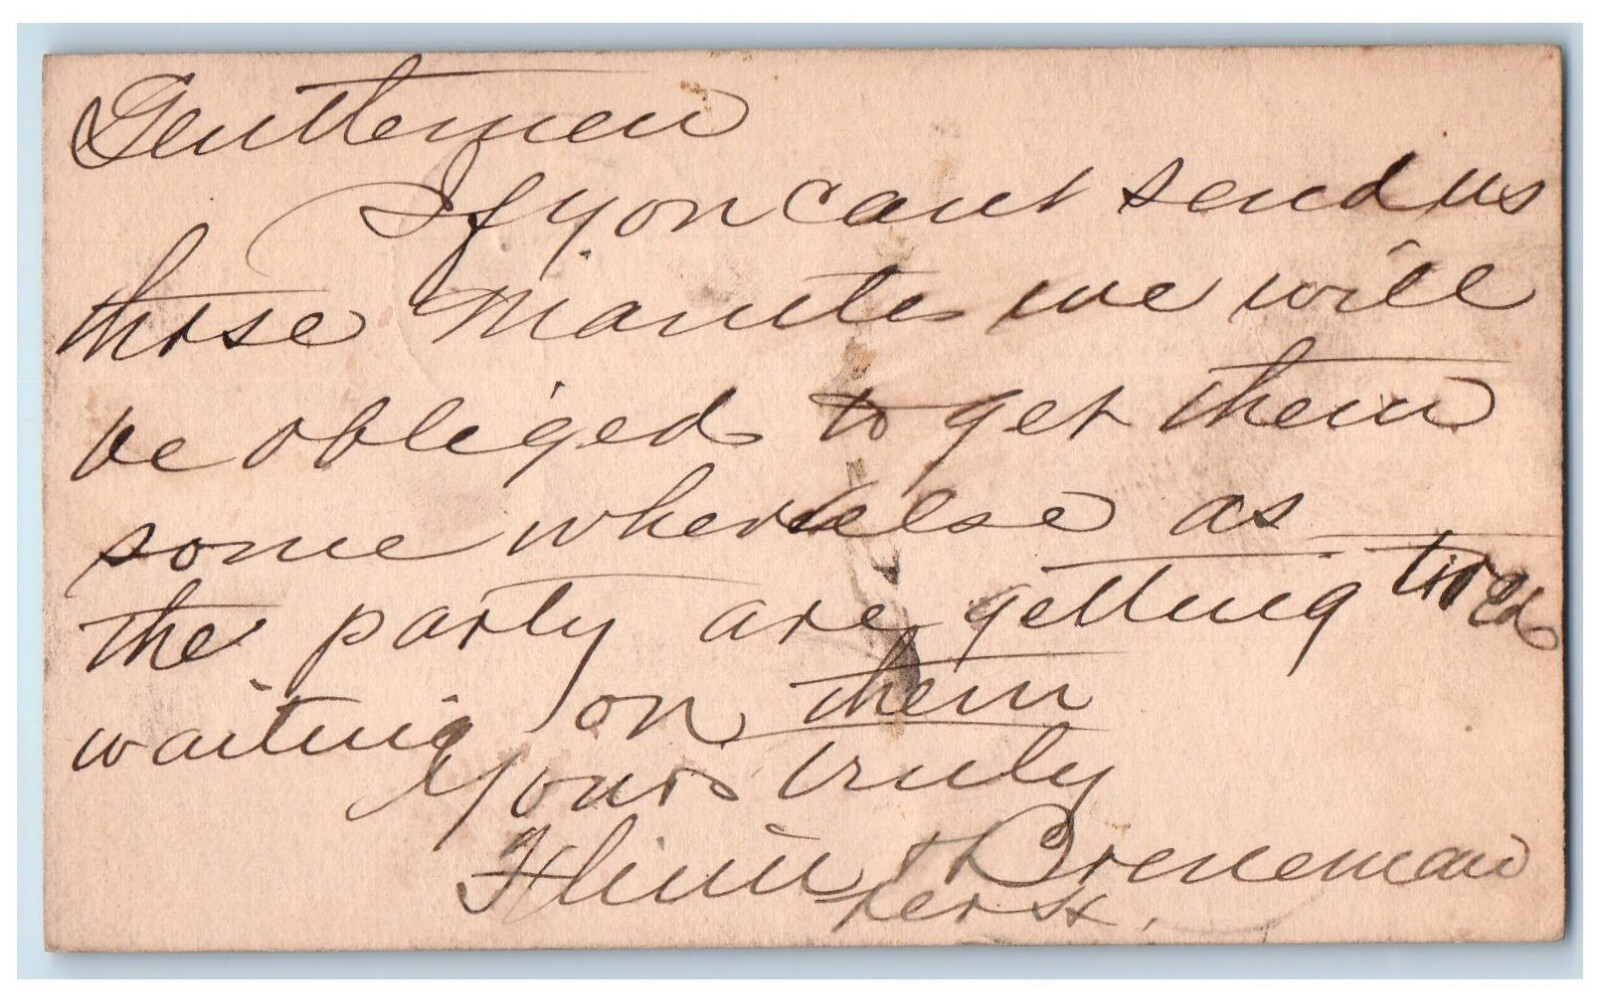 Gentlemen
If you cant send us
those Mantles we will
be obliged to get them
some where else as
the party are getting tired
waiting on them
Yours truly
Flinn & Breneman
per